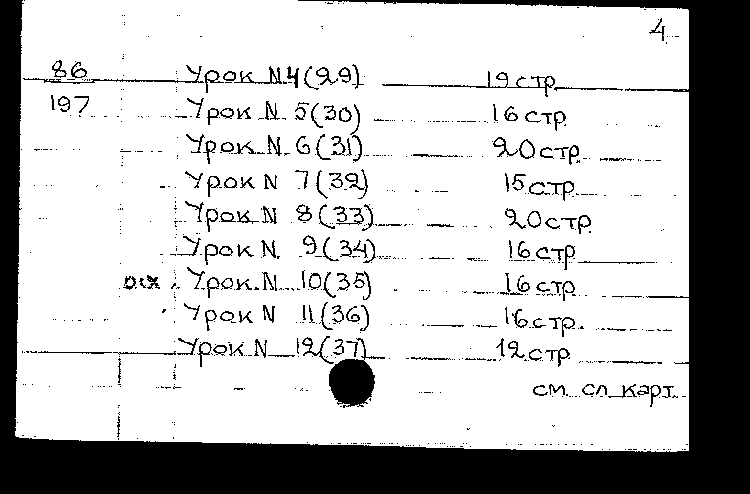 4
86 Урок N4(29) 19 стр
197 Урок N 5(30) 16 стр
Урок N 6(31) 20 стр
Урок N 7(32) 15 стр
Урок N 8(33) 20 стр
Урок N 9(34) 16 стр
Урок N 10(35) 16 стр
Урок N 11(36) 16 стр.
Урок N 12(37) 12 стр
см сл карт